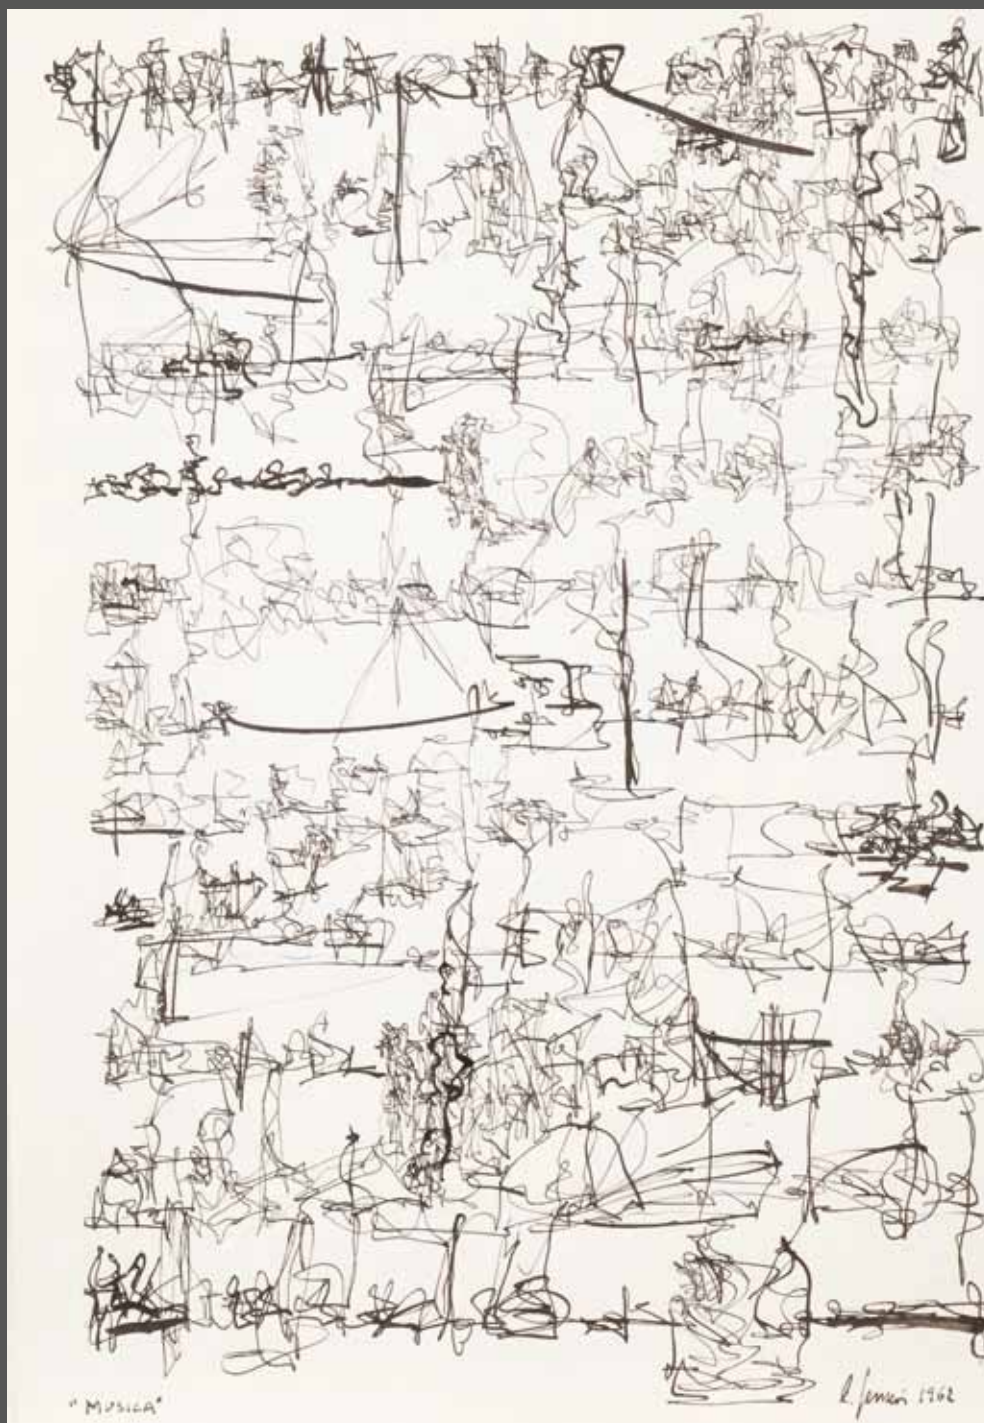 "MUSICA"
L. Ferrari 1962